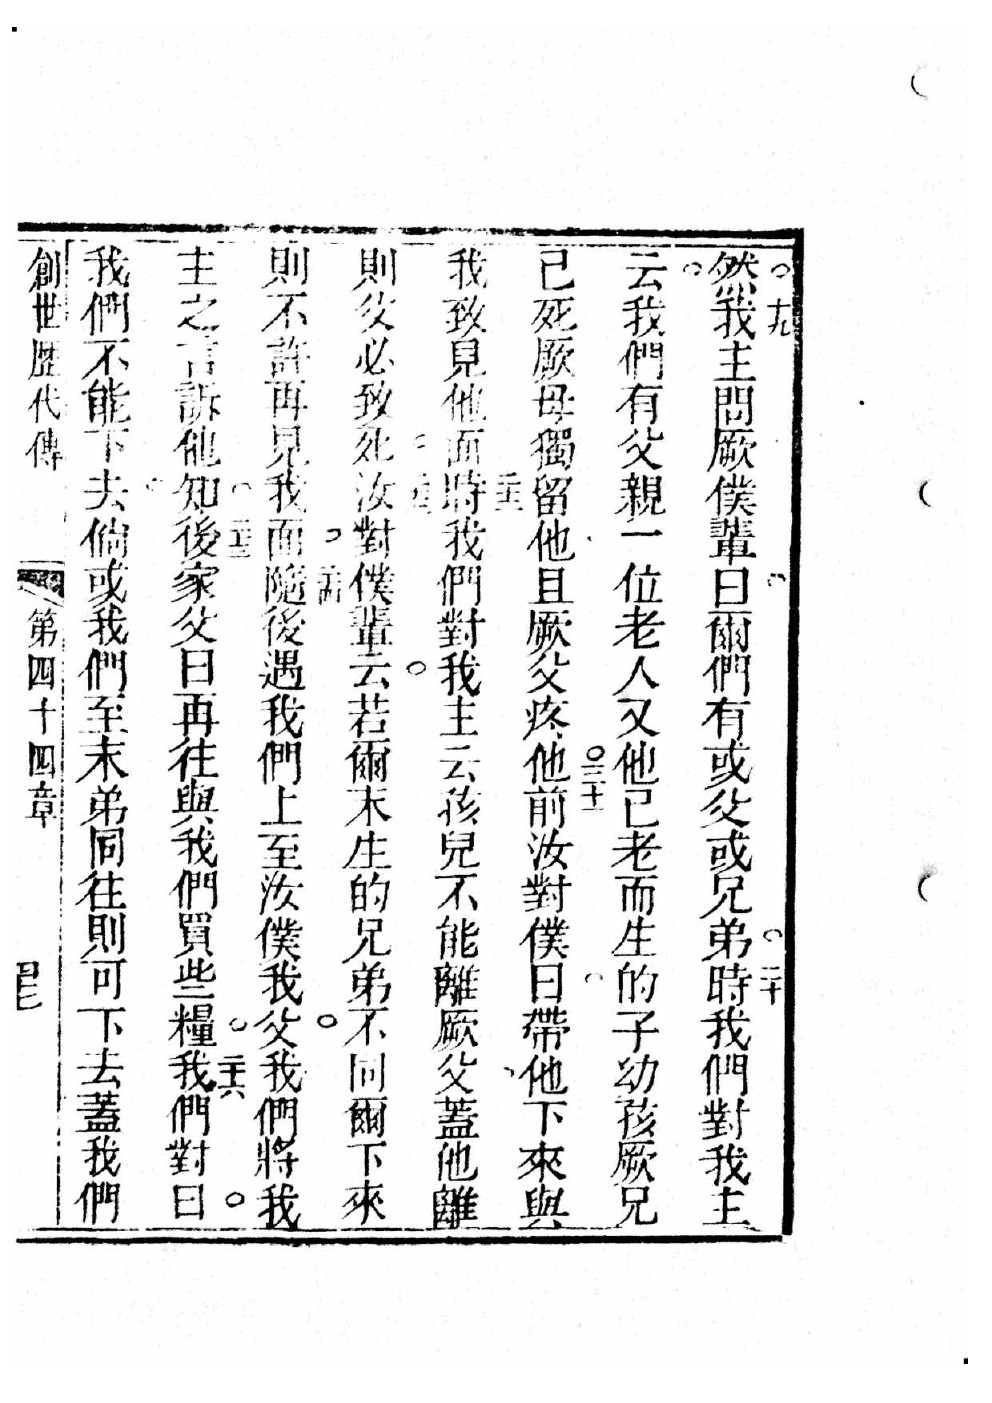 十九
然我主問厥僕輩曰爾們有或父或兄弟時我們對我主
二十
云我們有父親一位老人又他已老而生的子幼孩厥兄
二十一
已死厥母獨留他且厥父疼他前汝對僕曰帶他下來與
二十二
我致見他面時我們對我主云孩兒不能離厥父蓋他離
二十三
則父必致死汝對僕輩云若爾末生的兄弟不同爾下來
二十四
則不許再見我面隨後遇我們上至汝僕我父我們將我
二十五
主之言訴他知後家父曰再往與我們買些糧我們對曰
二十六
我們不能下去倘或我們至末弟同往則可下去蓋我們
創世歷代傳 第四十四章 四七